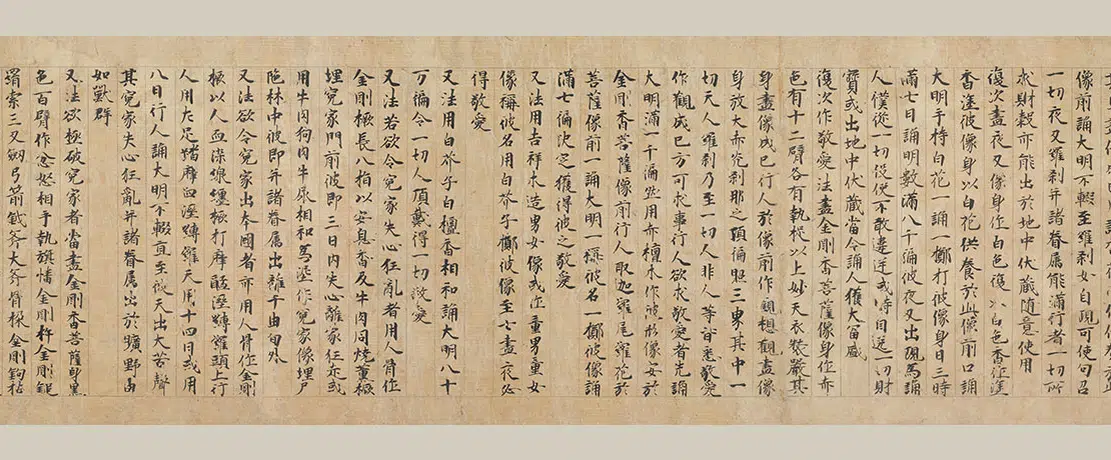 像前誦大明不輟至羅刹女自現可使句召
一切夜叉羅刹并諸眷屬能滿行者一切所
求財穀亦能出於地中伏藏隨意使用
復次畫夜叉像身作白色復以白色香作塗
香塗彼像身以白花供養於此像前口誦
大明手持白花一誦一擲打彼像身日三時
滿七日誦明數滿八千遍彼夜叉出現為誦
人僕從一切役使不敢違逆或時自送一切財
寶或出地中伏藏當令誦人獲大富盛
復次作敬愛法畫金剛香菩薩像身作赤
色有十二臂各有執捉以上妙天衣裝嚴其
身畫像成已行人於像前作觀想觀畫像
身放大赤光刹那之頃遍照三界其中一
切天人羅刹乃至一切人非人等皆悉敬愛
作觀成已方可求事行人欲求敬愛者先誦
大明滿一千遍然用赤檀木作彼形像安於
金剛香菩薩像前行人取迦羅尾羅花於
菩薩像前一誦大明一稱彼名一擲彼像誦
滿七遍決定獲得彼之敬愛
又法用吉祥木造男女像或作童男童女
像稱彼名用白芥子擲彼像至七晝夜必
得敬愛
又法用白芥子白檀香相和誦大明八十
万遍令一切人頂戴得一切敬愛
又法若欲令冤家失心狂亂者用人骨作
金剛橛長八指以安息香及牛肉同燒薰橛
埋冤家門前彼即三日內失心離家狂走或
用牛肉狗肉牛尿相和為埿作冤家像埋尸
陁林中彼即并諸眷屬出離千由旬外
又法欲令冤家出本國者亦用人骨作金剛
橛以人血染線纏橛打摩酤溼嚩羅頭上行
人用左足踏摩呬溼嚩羅天用十四日或用
八日行人誦大明不輟直至彼天出大苦聲
其冤家失心狂亂并諸眷屬出於曠野由
如獸群
又法欲極破冤家者當畫金剛香菩薩身黑
色百臂作忿怒相手執旗幡金剛杵金剛鎚
罥索三叉劒弓箭鉞斧大斧骨朶金剛鉤